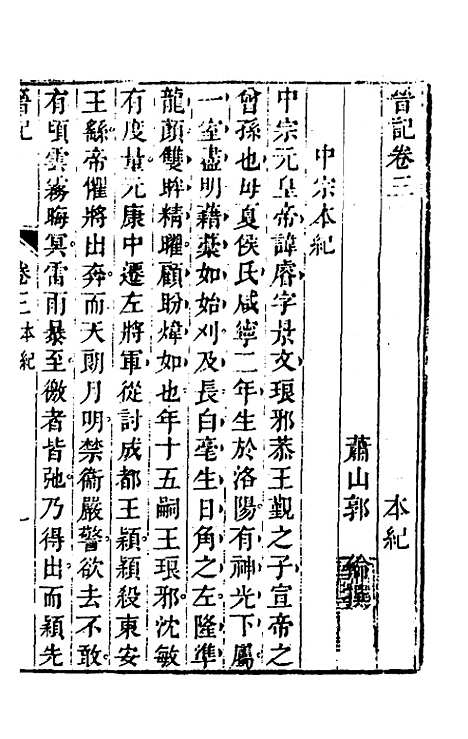 晉記卷三
本紀
蕭山郭倫撰
中宗本紀
中宗元皇帝諱睿字景文琅邪恭王覲之子宣帝之
曾孫也母夏侯氏咸寧二年生於洛陽有神光下屬
一室盡明藉藁如始刈及長白毫生日角之左隆準
龍顏雙眸精曜顧盼煒如也年十五嗣王琅邪沈敏
有度量元康中遷左將軍從討成都王穎穎殺東安
王繇帝懼將出奔而天朗月明禁衛嚴警欲去不敢
有頃雲霧晦冥雷雨暴至徼者皆弛乃得出而穎先
晉記
卷三本紀
一